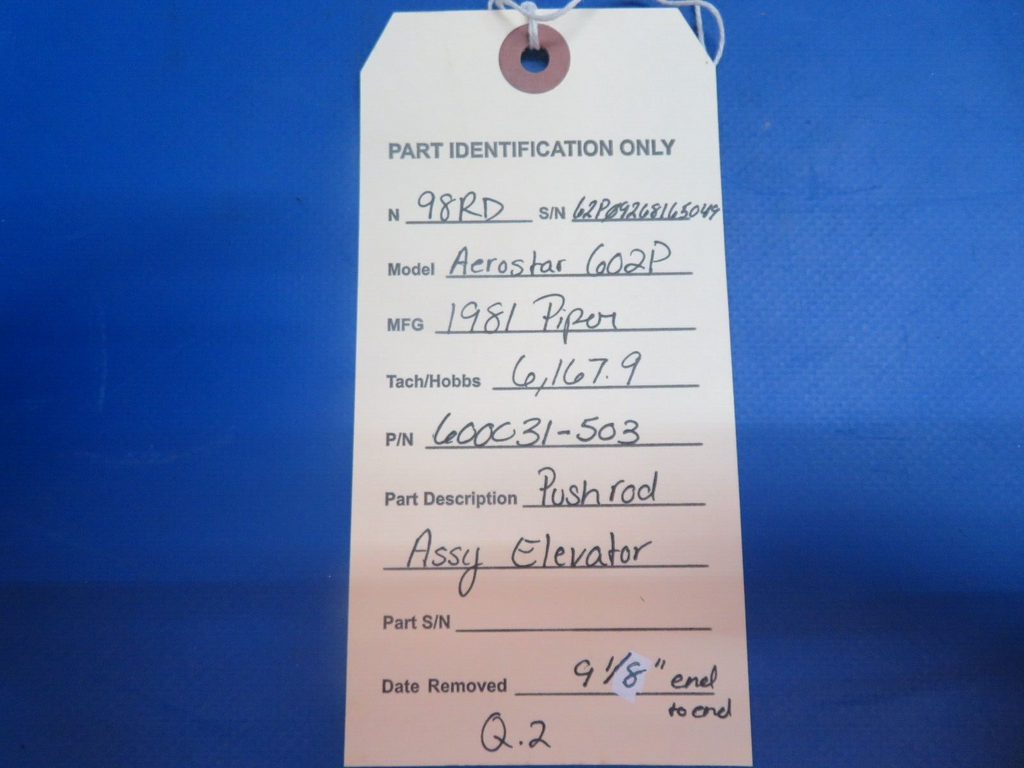 PART IDENTIFICATION ONLY
N 98RD S/N 62P09268165049
Model Aerostar 602P
MFG 1981 Piper
Tach/Hobbs 6,167.9
P/N 600C31-503
Part Description Pushrod
Assy Elevator
Part S/N
Date Removed 9 1/8" end
to end
Q.2